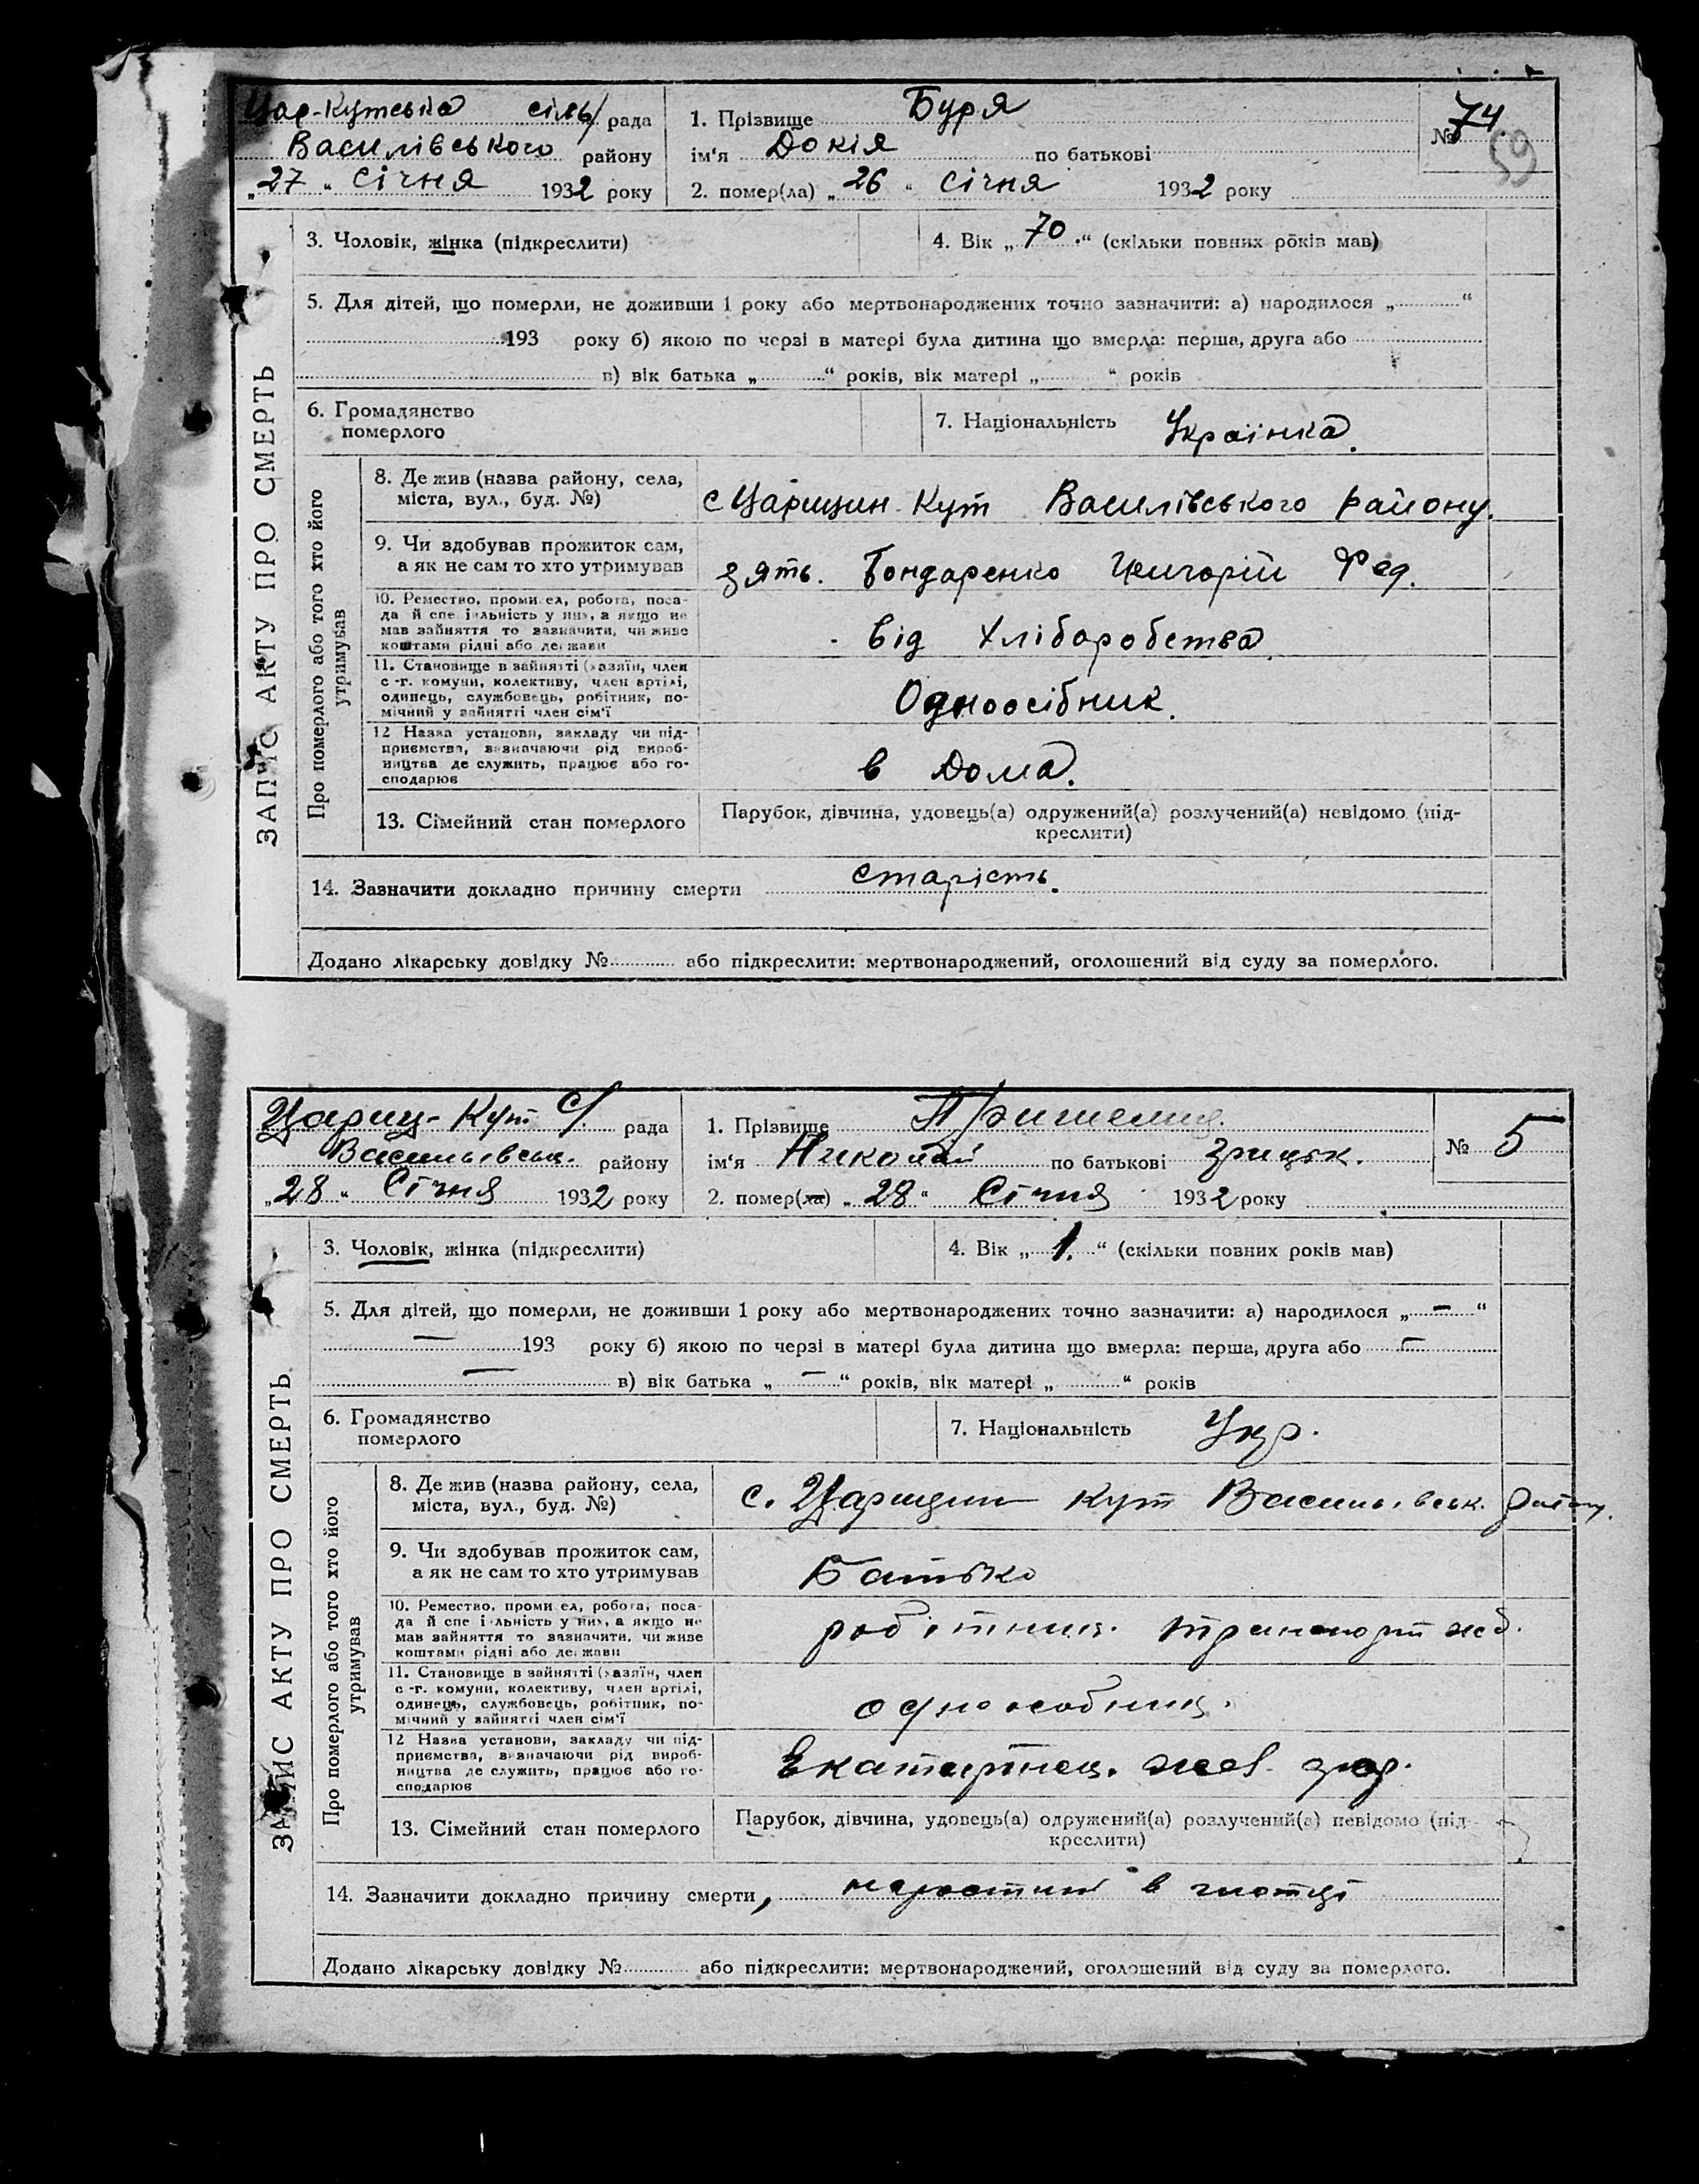 Цар-Кутська сіль/ рада
Василівського району
„27“ Січня 1932 року
1. Прізвище Буря
ім'я Докія по батькові
2. помер(ла) „26“ Січня 1932 року
№ 74
59
ЗАПИС АКТУ ПРО СМЕРТЬ
3. Чоловік, жінка (підкреслити)
4. Вік „70“ (скільки повних років мав)
5. Для дітей, що померли, не доживши 1 року або мертвонароджених точно зазначити: а) народилося „ “
193 року б) якою по черзі в матері була дитина що вмерла: перша, друга або
в) вік батька „ “ років, вік матері „ “ років
6. Громадянство
померлого
7. Національність Українка.
Про померлого або того хто його
утримував
8. Де жив (назва району, села,
міста, вул., буд. №)
с Царицин Кут Василівського району.
9. Чи здобував прожиток сам,
а як не сам то хто утримував
зять. Бондаренко Григорій Фед.
10. Ремество, промисел, робота, поса-
да й спеціальність у них, а якщо не
мав зайняття то зазначити, чи живе
коштами рідні або держави
від Хліборобства.
11. Становище в зайнятті (хазяїн, член
с.-г. комуни, колективу, член артілі,
одинець, службовець, робітник, по-
мічний у зайнятті член сім'ї
Одноосібник.
12 Назва установи, закладу чи під-
приємства, зазначаючи рід вироб-
ництва де служить, працює або го-
сподарює
в Дома.
13. Сімейний стан померлого
Парубок, дівчина, удовець(а) одружений(а) розлучений(а) невідомо (під-
креслити)
14. Зазначити докладно причину смерти старість.
Додано лікарську довідку № або підкреслити: мертвонароджений, оголошений від суду за померлого.
Цариц-Кут с/. рада
Васильівськ. району
„28“ Січня 1932 року
1. Прізвище
ім'я Николай по батькові Грицьк.
2. помер(ла) „28“ Січня 1932 року
№ 5
ЗАПИС АКТУ ПРО СМЕРТЬ
3. Чоловік, жінка (підкреслити)
4. Вік „1.“ (скільки повних років мав)
5. Для дітей, що померли, не доживши 1 року або мертвонароджених точно зазначити: а) народилося „ — “
— 193 року б) якою по черзі в матері була дитина що вмерла: перша, друга або —
— в) вік батька „ — “ років, вік матері „ “ років
6. Громадянство
померлого
7. Національність Укр.
Про померлого або того хто його
утримував
8. Де жив (назва району, села,
міста, вул., буд. №)
с. Царицин Кут Васильівськ. району.
9. Чи здобував прожиток сам,
а як не сам то хто утримував
Батько
10. Ремество, промисел, робота, поса-
да й спеціальність у них, а якщо не
мав зайняття то зазначити, чи живе
коштами рідні або держави
робітник. транспорт
11. Становище в зайнятті (хазяїн, член
с.-г. комуни, колективу, член артілі,
одинець, службовець, робітник, по-
мічний у зайнятті член сім'ї
одноособник.
12 Назва установи, закладу чи під-
приємства, зазначаючи рід вироб-
ництва де служить, працює або го-
сподарює
13. Сімейний стан померлого
Парубок, дівчина, удовець(а) одружений(а) розлучений(а) невідомо (під-
креслити)
14. Зазначити докладно причину смерти, в глотці
Додано лікарську довідку № або підкреслити: мертвонароджений, оголошений від суду за померлого.